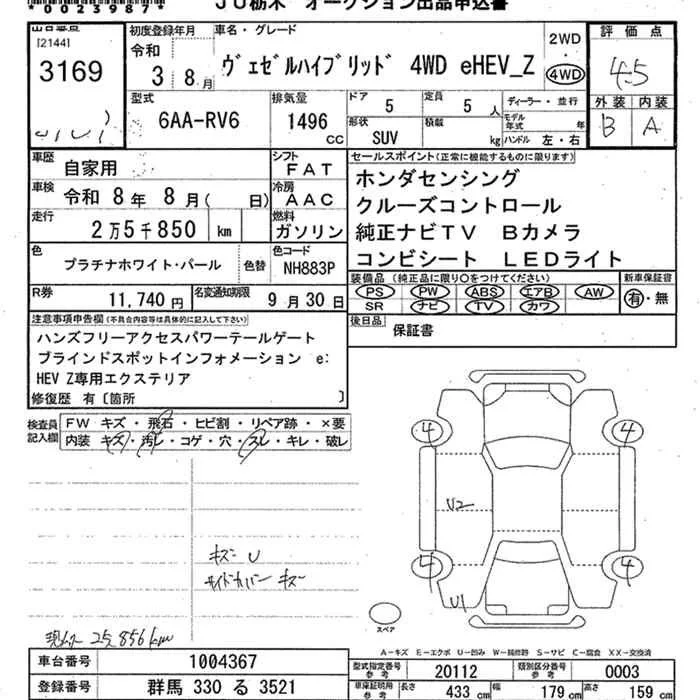 *0023987*
JU栃木 オークション出品申込書
[2144]
3169
初度登録年月
令和
3年 8月
車名・グレード
ヴェゼルハイブリッド 4WD eHEV_Z
2WD
・
4WD
評価点
4.5
外装 内装
B A
型式
6AA-RV6
排気量
1496
cc
ドア
5
定員
5
人
形状
SUV
積載
kg
ディーラー・並行
モデル年式 年
ハンドル 左・右
車歴
自家用
シフト
FAT
車検
令和 8年 8月( 日)
冷房
AAC
走行
2万5千850 km
燃料
ガソリン
色
プラチナホワイト・パール
色替
色コード
NH883P
R券
11,740円
名変通知期限
9月30日
セールスポイント(正常に機能するものに限ります)
ホンダセンシング
クルーズコントロール
純正ナビTV Bカメラ
コンビシート LEDライト
装備品 (純正品に限り○をつけてください)
PS PW ABS エアB AW
SR ナビ TV カワ
新車保証書
有・無
後日品
保証書
注意事項申告欄(不具合内容等は具体的に記入して下さい)
ハンズフリーアクセスパワーテールゲート
ブラインドスポットインフォメーション e:
HEV Z専用エクステリア
修復歴 有〔箇所 〕
検査員
記入欄
FW キズ・飛石・ヒビ割・リペア跡・×要
内装 キズ・汚レ・コゲ・穴・スレ・キレ・破レ
キズ U
サイドカバー キズ
現メーター 25,856km
4 4
U2
U1
スペア
A－キズ E－エクボ U－凹み W－補修跡 S－サビ C－腐食 XX－交換済
車台番号
1004367
登録番号
群馬 330 る 3521
型式指定番号
参考
20112
類別区分番号
参考
0003
車庫証明用
参考
長さ 433 cm
幅 179 cm
高さ 159 cm